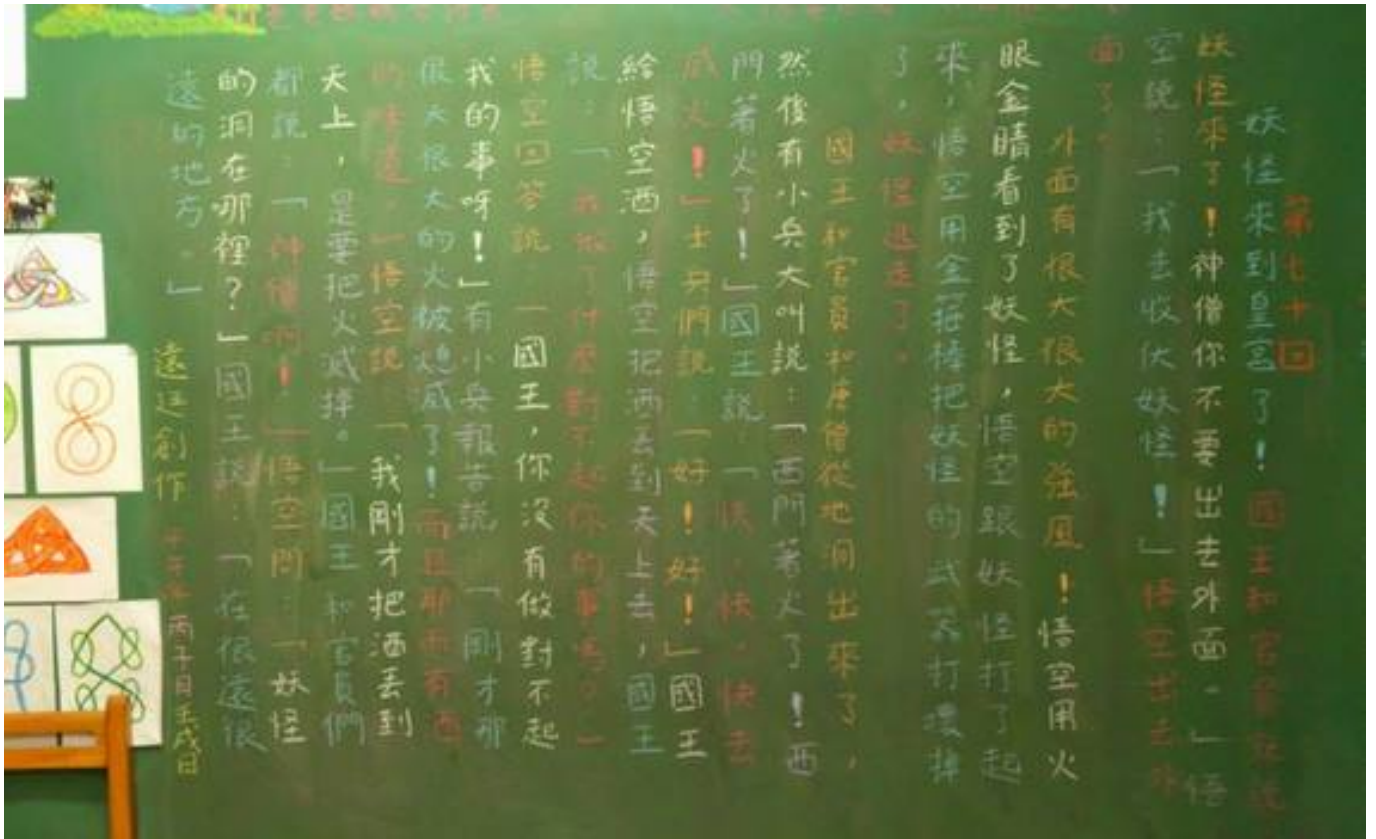 第七十回
妖怪來到皇宮了！國王和官員就說
妖怪來了！神僧你不要出去外面。」悟
空說：「我去收伏妖怪！」悟空出去外
面了。
外面有很大很大的強風！悟空用火
眼金睛看到了妖怪，悟空跟妖怪打了起
來，悟空用金箍棒把妖怪的武器打壞掉
了，妖怪逃走了。
國王和官員和唐僧從地洞出來了，
然後有小兵大叫說：「西門著火了！西
門著火了！」國王說：「快，快，快去
威火！」士兵們說：「好！好！」國王
給悟空酒，悟空把酒丟到天上去，國王
說：「我做了什麼對不起你的事嗎。」
悟空回答說：「國王，你沒有做對不起
我的事呀！」有小兵報告說：「剛才那
很大很大的火被熄威了！而且那雨有酒
的味道。」悟空說：「我剛才把酒丟到
天上，是要把火威掉。」國王和官員們
都說：「神僧啊！」悟空問：「妖怪
的洞在哪裡？」國王說：「在很遠很
遠的地方。」
創作
丙子月壬戌日